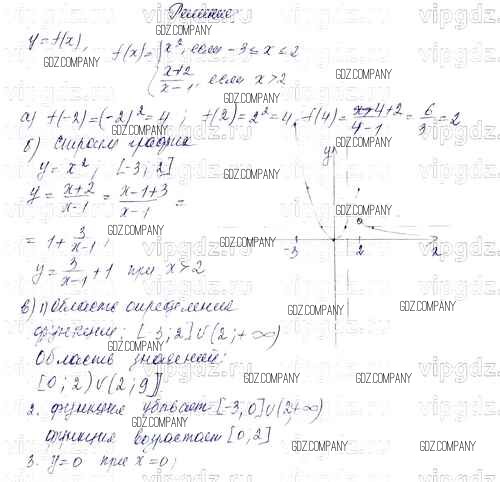 Решение:
y=f(x), f(x)= { x², если -3≤x≤2
x+2/x-1, если x>2
а) f(-2)=(-2)²=4; f(2)=2²=4, f(4)= 4+2/4-1 = 6/3 = 2
б) Строим график
y=x², [-3;2]
y= x+2/x-1 = x-1+3/x-1 =
= 1+ 3/x-1;
y= 3/x-1 +1 при x>2
y
-3 2 x
в) 1) Область определения
функции: [-3;2]∪(2;+∞)
Область значений:
[0;2)∪(2;9]
2. функция убывает [-3,0]∪(2;+∞)
функция возрастает [0,2]
3. y=0 при x=0;
GDZ.COMPANY
vipgdz.ru